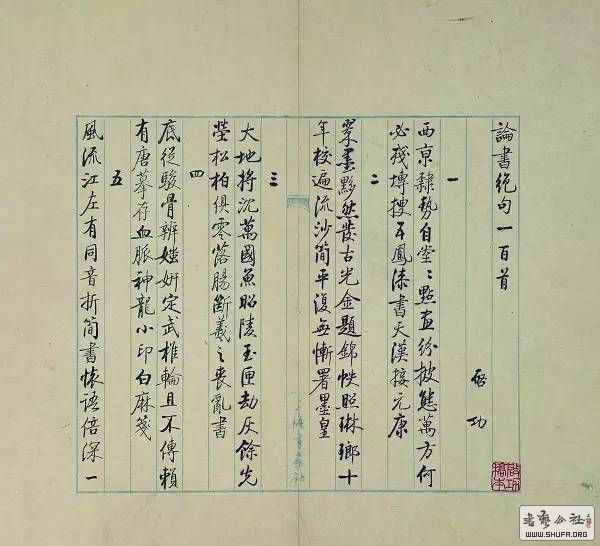 論書絕句一百首
启功
一
西京隸勢自堂〻點畫紛披態萬方何
必殘塼搜五鳳漆書天漢接元康
二
翠墨黟然發古光金題錦帙照琳瑯十
年校遍流沙簡平復無慚署墨皇
三
大地將沈萬國魚昭陵玉匣劫灰餘先
塋松柏俱零落腸斷羲之喪亂書
四
底從駿骨辨媸妍定武椎輪且不傳賴
有唐摹存血脈神龍小印白麻箋
五
風流江左有同音折簡書懷語倍深一
書藝公社
WWW.SHUFA.ORG